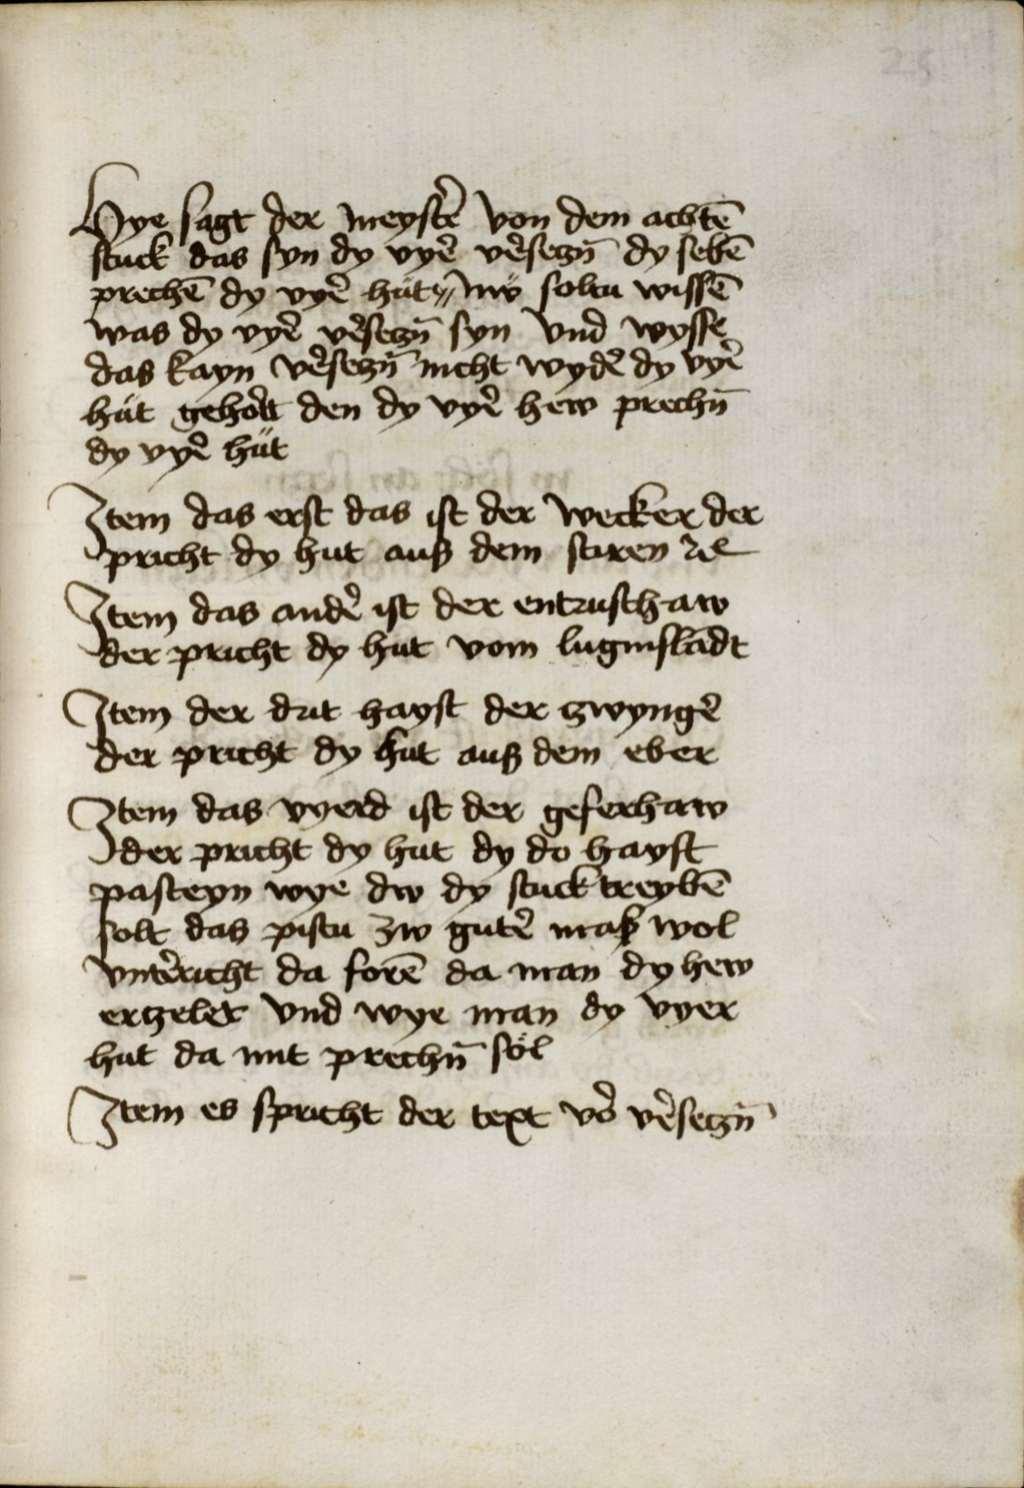 25
Hye sagt der meystẽ von dem achtẽ
stuck das syn dy vyẽ vẽseczñ dy selbẽ
prechẽ dy vyẽ hüt // nẅ soltu wissẽ
was dy vyẽ vẽseczñ syn Vnd wysse
das kayn vẽseczñ nicht wydẽ dy vyẽ
hüt gehoͤrt den dy vyẽ hew prechñ
dy vyẽ hüt
Item das erst das ist der wecker der
pricht dy hut auß dem stiren ⁊c
Item das andẽ ist der entrusthaw
der pricht dy hut vom luginslãdt
Item der drit hayst der zwyngẽ
der pricht dy hut auß dem eber
Item das vyerd ist der geferhaw
der pricht dy hut dy do hayst
pasteyn wye dw dy stuck treybẽ
solt das pistu zw gutẽ maß wol
vntẽricht da forẽ da man dy hew
erczelet Vnd wye man dy vyer
hut da mit prechñ söl
Item es spricht der text võ vẽseczñ